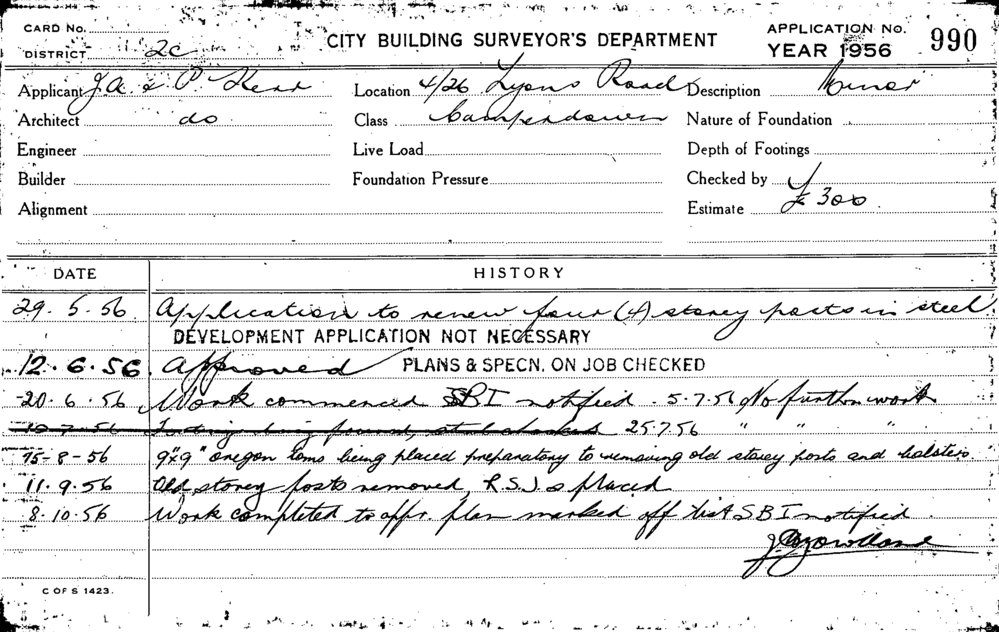 CARD No.
DISTRICT 2c
CITY BUILDING SURVEYOR'S DEPARTMENT
APPLICATION No. 990
YEAR 1956
Applicant J.A. & P. Location 4/26 Lyons Road Description Minor
Architect do Class Camperdown Nature of Foundation
Engineer Live Load Depth of Footings
Builder Foundation Pressure Checked by
Alignment Estimate £300
DATE HISTORY
29.5.56 Application to renew four (4) storey posts in steel.
DEVELOPMENT APPLICATION NOT NECESSARY
12.6.56. Approved PLANS & SPECN. ON JOB CHECKED
20.6.56 Work commenced SBI notified. 5.7.56 No further work
10.7.56 being poured, steel checked 25.7.56 " " "
15-8-56 9"x9" oregon toms being placed preparatory to removing old storey posts and bolsters
11.9.56 Old storey posts removed, R.S.J.s placed
8.10.56 Work completed to appr. plan marked off list SBI notified
C OF S 1423.